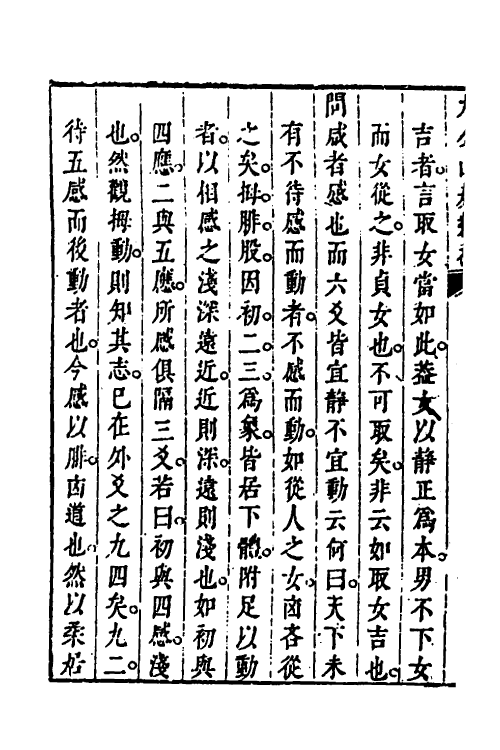 吉者。言取女當如此。葢女以靜正爲本。男不下女
而女從之。非貞女也。不可取矣。非云如取女吉也。
問咸者感也而六爻皆宜靜不宜動云何曰。天下未
有不待感而動者。不感而動。如從人之女。凶吝從
之矣。拇腓股。因初二三爲象。皆居下體。附足以動
者。以相感之淺深遠近。近則深。遠則淺也。如初與
四應。二與五應。所感俱隔三爻。若曰。初與四感。淺
也。然觀拇動。則知其志。已在外爻之九四矣。九二。
待五感而後動者也。今感以腓。凶道也。然以柔居